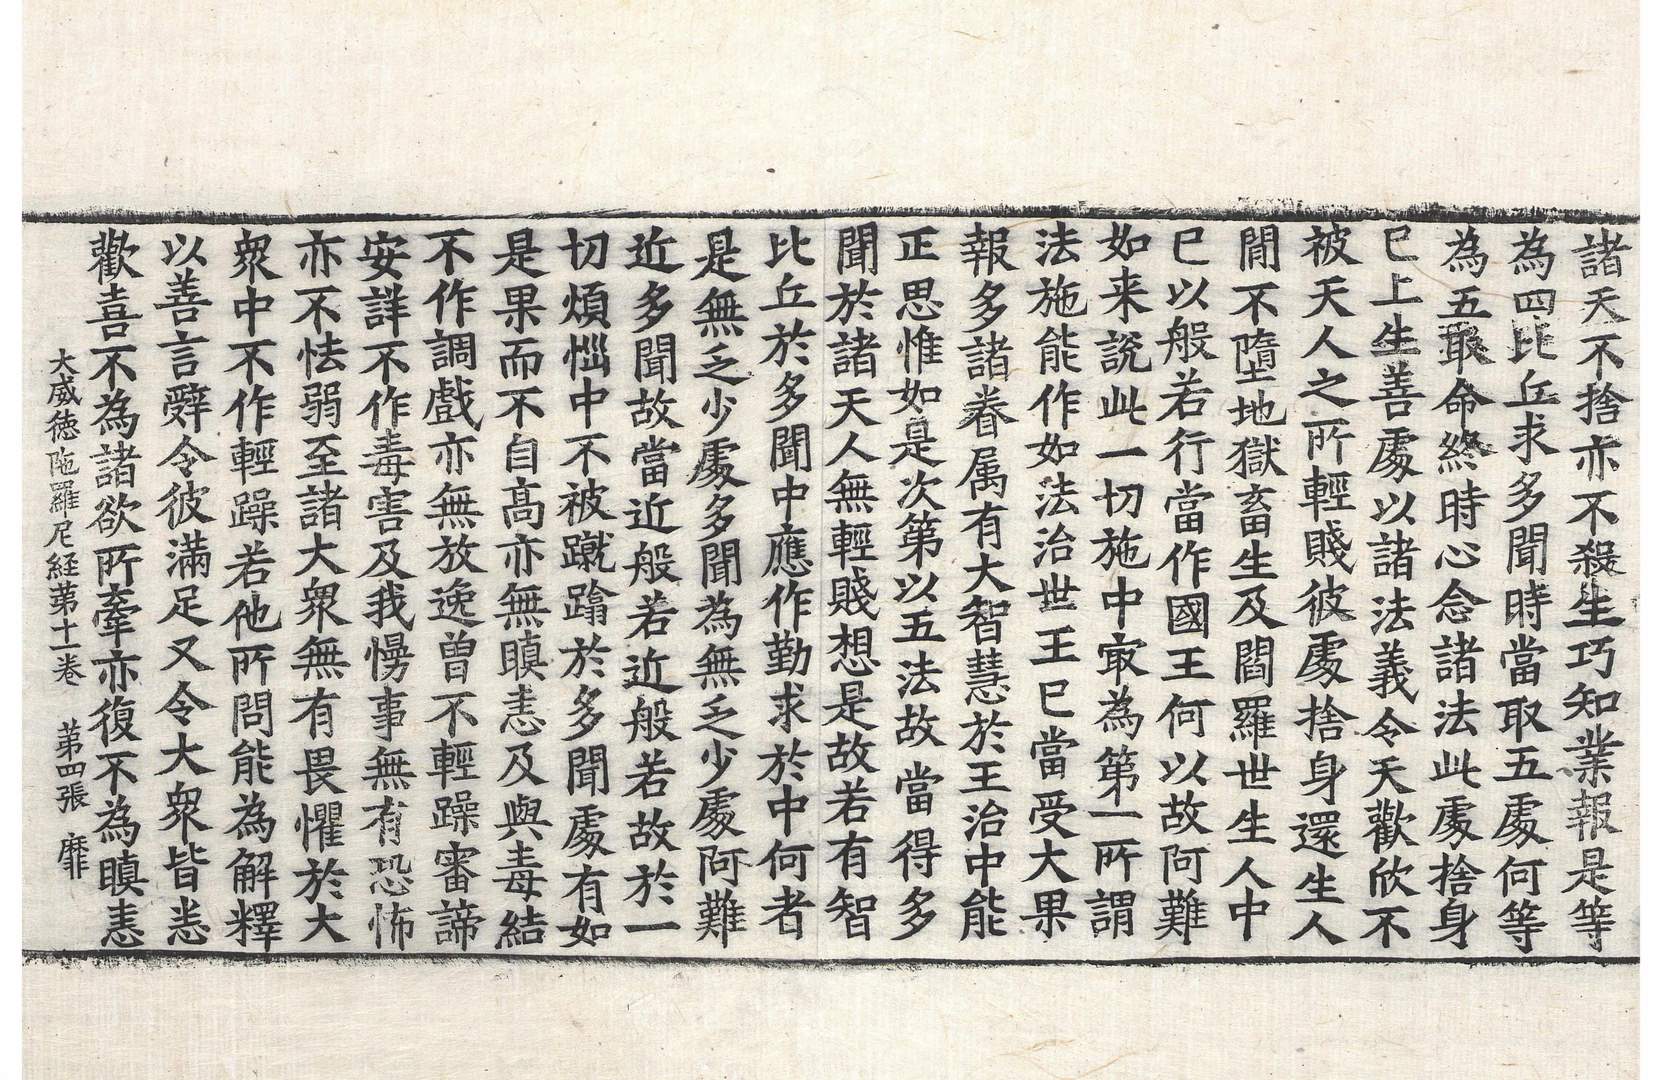 諸天不捨亦不殺生巧知業報是等
為四比丘求多聞時當取五處何等
為五取命終時心念諸法此處捨身
已上生善處以諸法義令天歡欣不
被天人之所輕賤彼處捨身還生人
間不墮地獄畜生及閻羅世生人中
已以般若行當作國王何以故阿難
如来說此一切施中㝡為第一所謂
法施能作如法治世王已當受大果
報多諸眷属有大智慧於王治中能
正思惟如是次第以五法故當得多
聞於諸天人無輕賤想是故若有智
比丘於多聞中應作勤求於中何者
是無乏少處多聞為無乏少處阿難
近多聞故當近般若近般若故於一
切煩惱中不被蹴蹹於多聞處有如
是果而不自高亦無瞋恚及與毒結
不作調戲亦無放逸曾不輕躁審諦
安詳不作毒害及我慢事無有恐怖
亦不怯弱至諸大眾無有畏懼於大
眾中不作輕躁若他所問能為解釋
以善言辭令彼滿足又令大眾皆悉
歡喜不為諸欲所牽亦復不為瞋恚
大威徳陁羅尼経第十一卷 第四張 靡